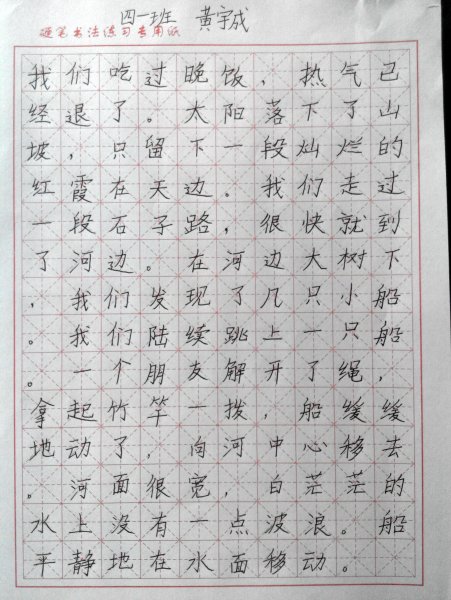 四一班 黄宇成
硬笔书法练习专用纸
我们吃过晚饭，热气已
经退了。太阳落下了山
坡，只留下一段灿烂的
红霞在天边。我们走过
一段石子路，很快就到
了河边。在河边大树下
，我们发现了几只小船
。我们陆续跳上一只船
。一个朋友解开了绳，
拿起竹竿一拨，船缓缓
地动了，向河中心移去
。河面很宽，白茫茫的
水上没有一点波浪。船
平静地在水面移动。